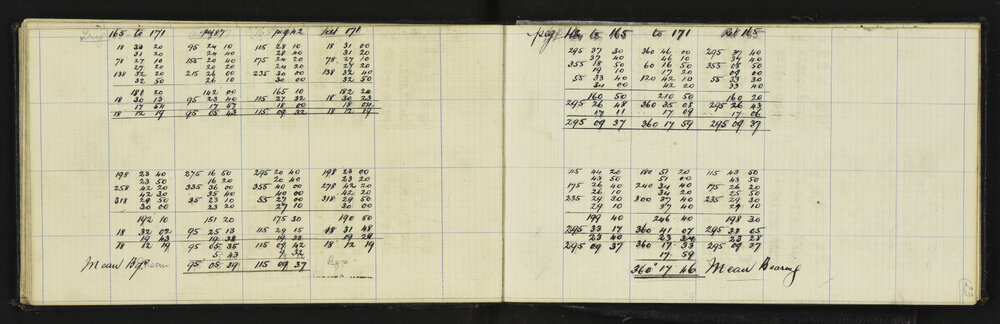 165 to 171 pg 87 165 pg 42 Ret 171
18 30 20 95 24 10 115 28 10 18 31 00
31 20 24 40 28 40 31 20
78 27 10 155 20 40 175 24 20 78 27 10
27 20 20 20 24 20 27 20
138 32 20 215 26 00 235 30 00 138 32 40
32 50 26 10 30 00 32 50
181 20 142 00 165 10 182 20
18 30 13 95 23 40 115 27 32 18 30 23
17 54 17 57 18 00 18 04
18 12 19 95 05 43 115 09 32 18 12 19
198 23 40 275 16 50 295 20 40 198 23 00
23 50 16 20 20 40 23 20
258 42 20 335 36 00 355 40 00 278 42 20
42 30 35 40 40 00 42 20
318 29 50 35 23 10 55 27 00 318 29 50
30 00 23 20 27 10 30 00
192 10 151 20 175 30 190 50
18 32 02 95 25 13 115 29 15 18 31 48
19 43 19 38 19 33 19 29
18 12 19 95 05 35 115 09 42 18 12 19
5 43 9 32
Mean Bg 95 05 39 115 09 37
pg 42 to 165 to 171 Ret 165
295 37 30 360 46 00 295 37 40
37 40 46 10 34 40
355 18 50 60 16 50 355 08 50
19 10 17 20 09 00
55 33 40 120 42 10 55 33 30
34 00 42 20 33 40
160 50 210 50 160 20
295 26 48 360 35 08 295 26 43
17 11 17 09 17 06
295 09 37 360 17 59 295 09 37
115 44 20 180 51 20 115 43 50
43 50 51 00 43 50
175 26 40 240 34 40 175 26 20
26 10 34 20 25 50
235 29 30 300 37 40 235 29 30
29 10 37 40 29 10
199 40 246 40 198 30
295 33 17 360 41 07 295 33 05
23 40 23 34 23 28
295 09 37 360 17 33 295 09 37
17 59
360° 17 46 Mean Bearing